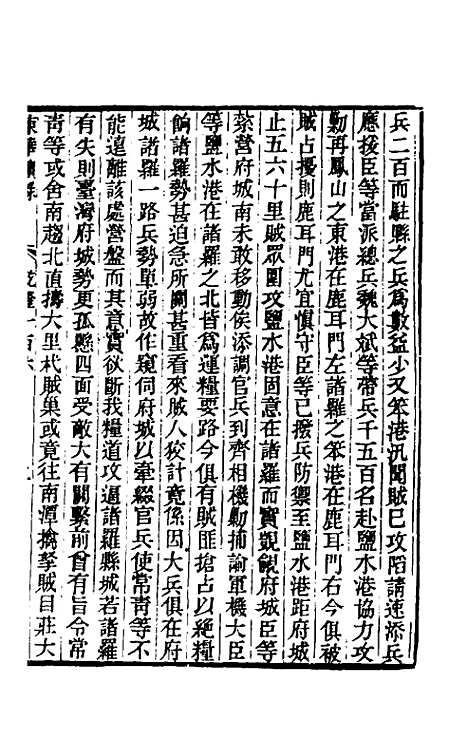 兵二百而駐縣之兵爲數益少又笨港汛聞賊已攻陷請速添兵
應援臣等當派總兵魏大斌等帶兵千五百名赴鹽水港協力攻
勦再鳳山之東港在鹿耳門左諸羅之笨港在鹿耳門右今俱被
賊占擾則鹿耳門尤宜慎守臣等已撥兵防禦至鹽水港距府城
止五六十里賊眾圍攻鹽水港固意在諸羅而實覬覦府城臣等
紮營府城南未敢移動俟添調官兵到齊相機勦捕諭軍機大臣
等鹽水港在諸羅之北皆爲運糧要路今俱有賊匪搶占以絕糧
餉諸羅勢甚迫急所關甚重看來賊人狡計竟係因大兵俱在府
城諸羅一路兵勢單弱故作窺伺府城以牽綴官兵使常靑等不
能遠離該處營盤而其意實欲斷我糧道攻逼諸羅縣城若諸羅
有失則臺灣府城勢更孤懸四面受敵大有關繫前曾有旨令常
靑等或舍南趨北直擣大里杙賊巢或竟往南潭擒拏賊目莊大
東華續錄 乾隆一百六